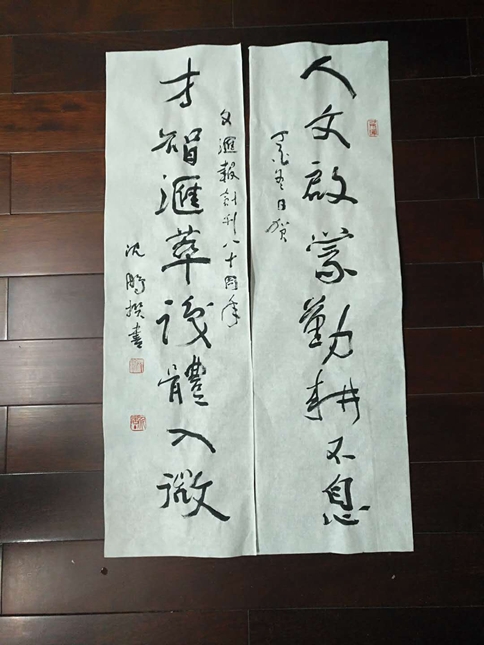 人文啟蒙勤耕不息
丁酉冬日賀
文滙報創刊八十周年
才智滙萃體入微
沈鵬撰書